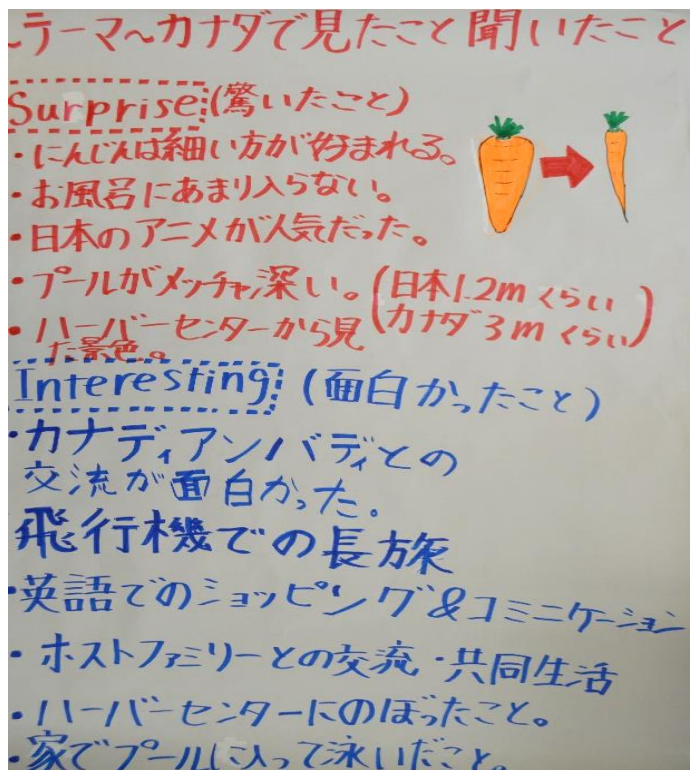 ~テーマ~カナダで見たこと聞いたこと
Surprise(驚いたこと)
・にんじんは細い方が好まれる。
・お風呂にあまり入らない。
・日本のアニメが人気だった。
・プールがメッチャ深い。(日本1.2mくらい
カナダ3mくらい)
・ハーバーセンターから見
た景色。
Interesting(面白かったこと)
・カナディアンバディとの
交流が面白かった。
飛行機での長旅
・英語でのショッピング&コミニケーション
・ホストファミリーとの交流・共同生活
・ハーバーセンターにのぼったこと。
・家でプールに入って泳いだこと。